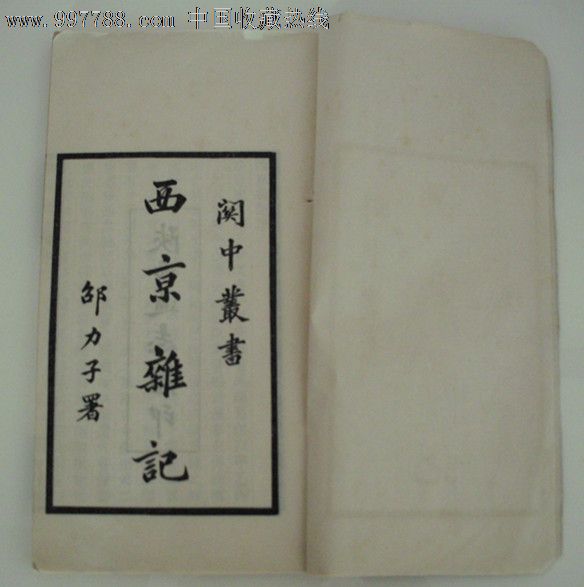 www.997788.com 中国收藏热线
関中叢書
西京雜記
邵力子署